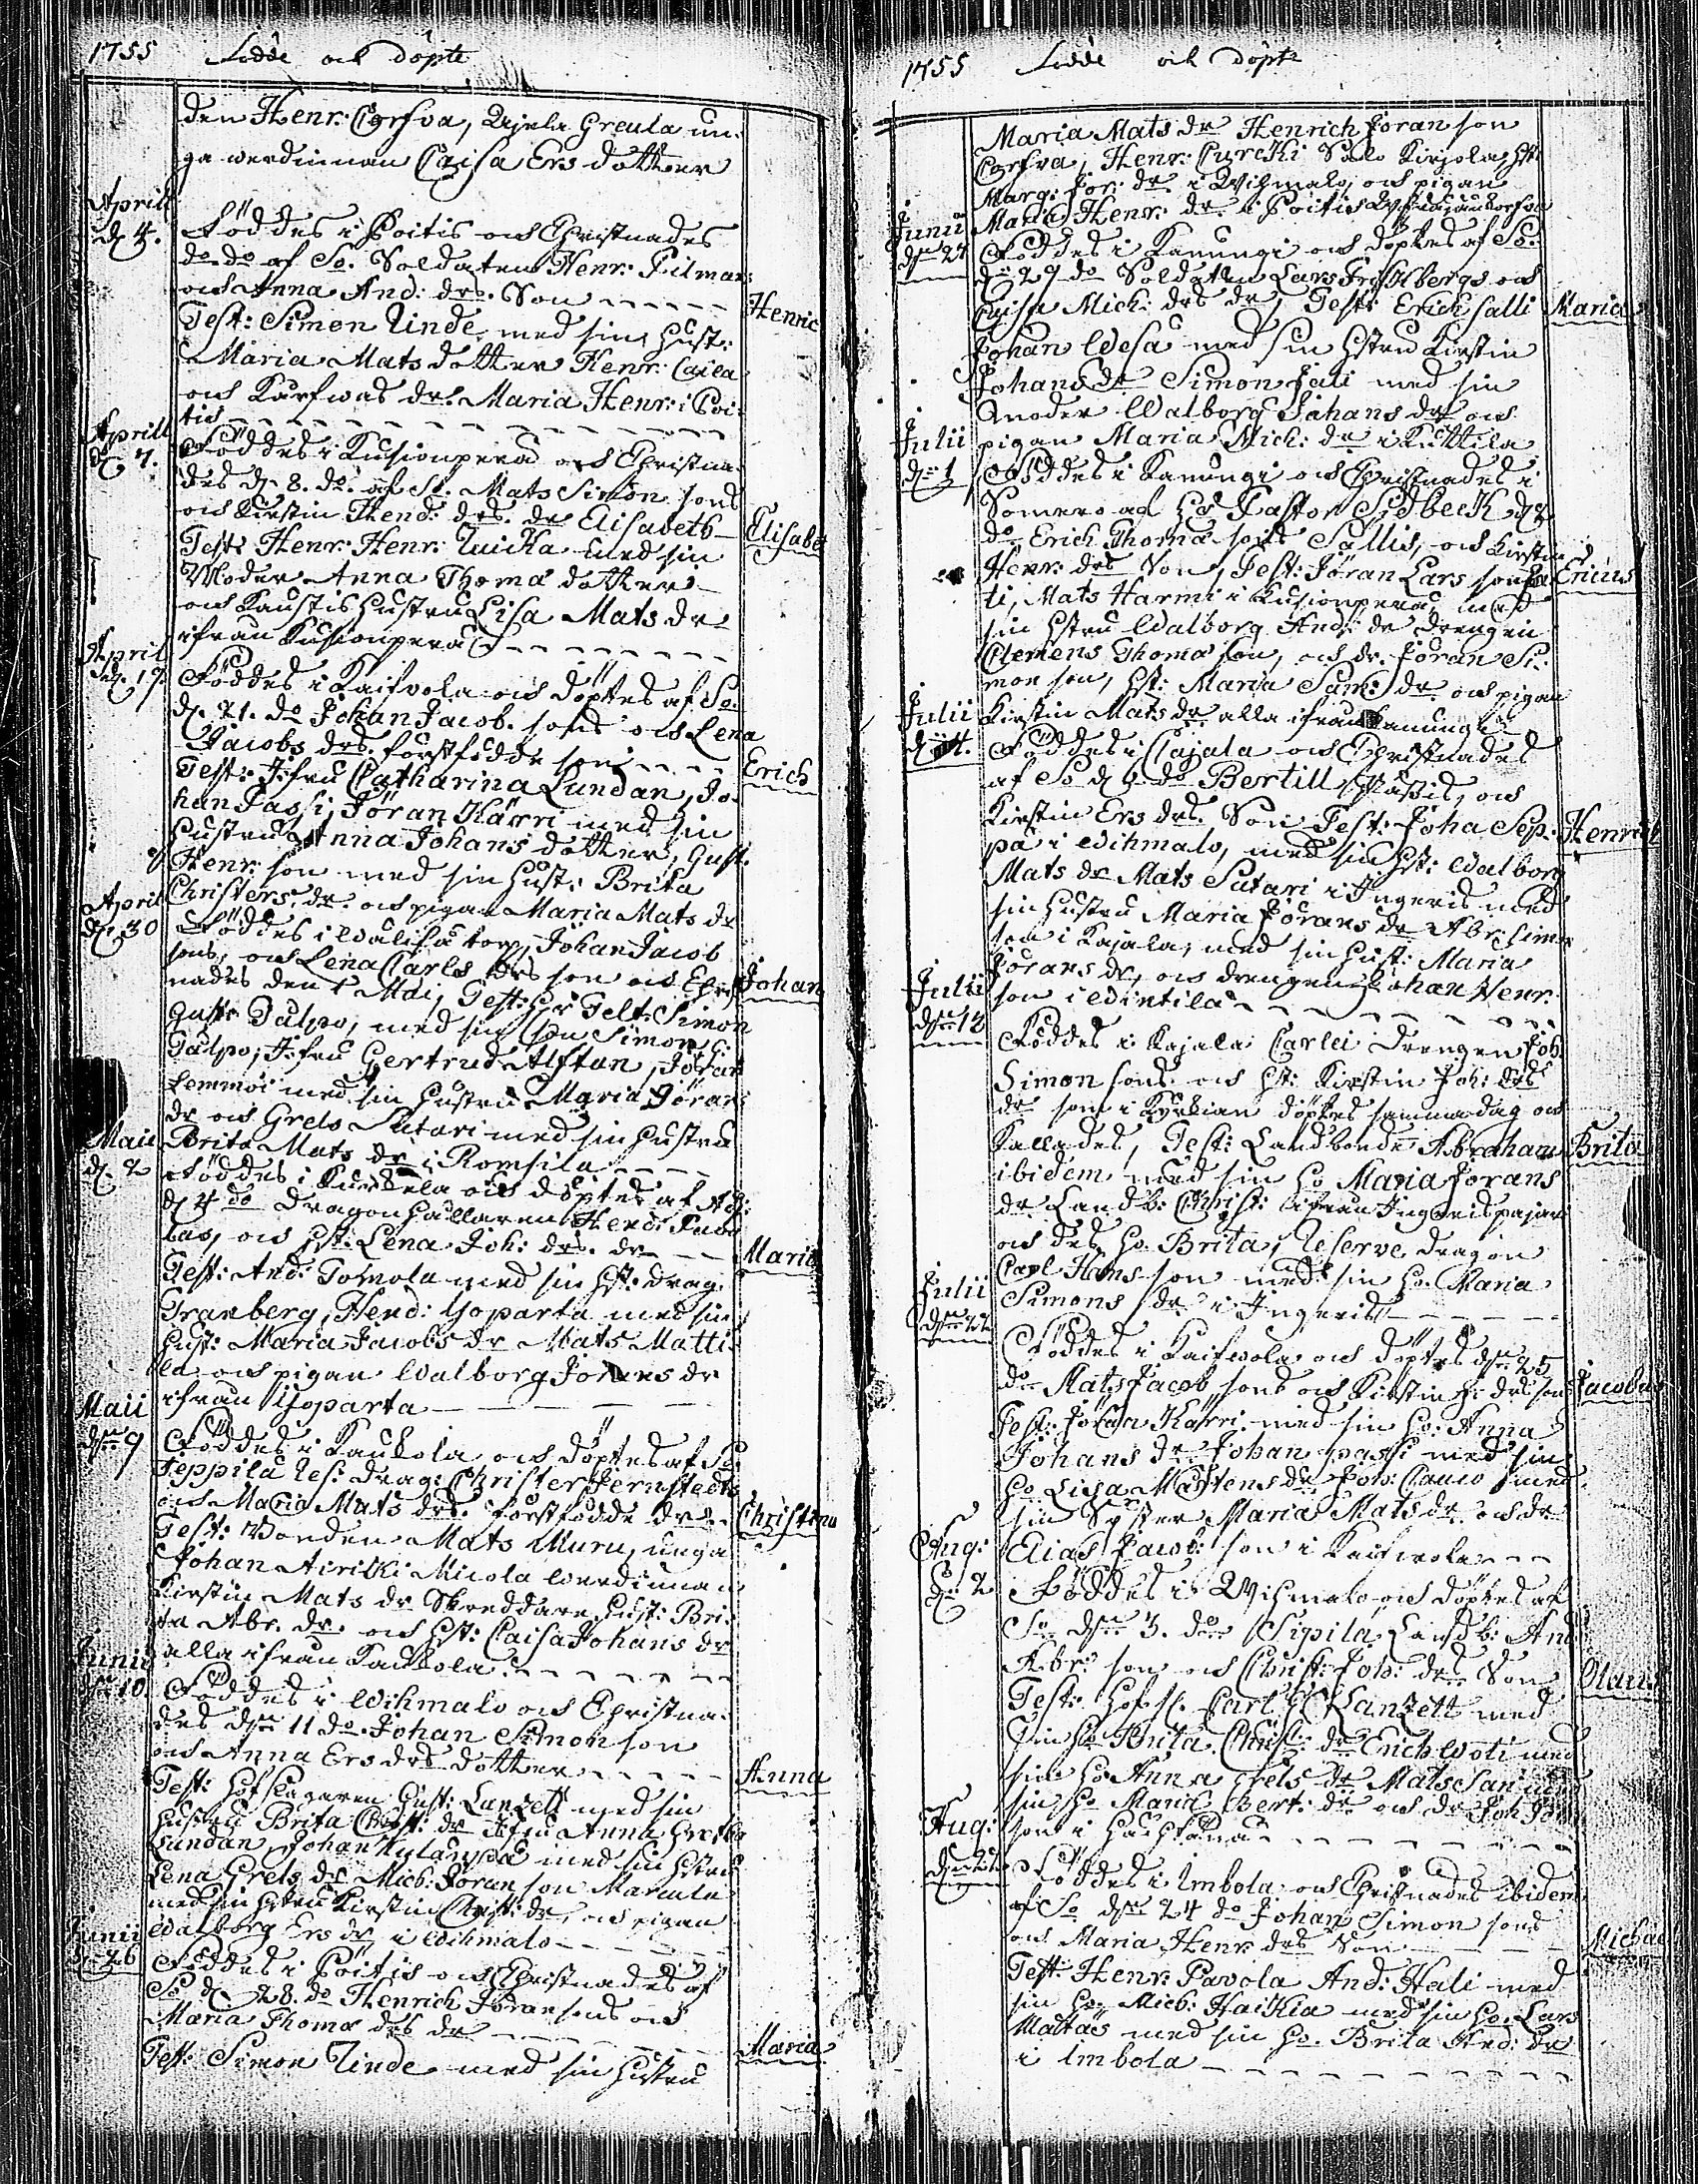 1755 Födde och döpte
den Henr: Corfva, Ujala Greula un-
ga werdinnan Caisa Ers dotter
Aprill
d. 4. Föddes i Poitis och Christnades
do do af So. Soldaten Henr: Pilman
och Anna And: drs. Son Henric
Test: Simon Linde med sin Hust:
Maria Mats dotter Henr: Caila
och Kårfwas dr. Maria Henr: i Poi-
tis
Aprill
d. 7. Föddes i Kusionperä och Christna-
des d. 8. do. af St. Mats Simon sons
och Kirstin Hend: drs. dr Elisabeth Elisabet
Test: Henr: Henr: Luicka med sin
Moder Anna Thoma dotter
och Kaustis Hustru Lisa Mats dr
ifrån Kusionperä
April
d. 17. Föddes i Kaifvola och döptes af So.
d. 21. do Johan Jacob. sons och Lena
Jacobs drs. förstfödde son Erich
Test: Jfru Catharina Lundan, Jo-
han Passi, Jöran Kärri med sin
Hustru Anna Johans dotter, Gust.
Henr: son med sin Hust: Brita
Christers dr. och pigan Maria Mats dr
April
d. 30 Föddes i Walisa torp, Johan Jacob
sons, och Lena Carls drs son och Christ- Johan
nades den 1 Maij, Test: Hr Felt: Simon
Gust: Palpo, med sin son Simon
Palpo, Jfru Gertrud Alftan, Jöran
Lemmoi med sin Hustru Maria Jörans
dr och Grels Sutari med sin Hustru
Brita Mats dr i Romsila
Maii
d. 2 Föddes i Kurkela och döptes af
d 4 do Dragonhållaren Hend:
las, och Hst: Lena Joh: drs. dr Maria
Test: And: Tomola med sin Hst: drag.
Granberg, Hend: Yoparta med sin
Hust: Maria Jacobs dr Mats Matti-
la och pigan Walborg Johans dr
ifrån Yoparta
Maii
d. 9 Föddes i Kaukola och döptes af So.
Seppilä Res: drag: Christer Jernstedts
och Maria Mats drs. förstfödde dr Christina
Test: Bonden Mats Muru, unga
Johan Airikki Micola werdinnan
Kirstin Mats dr Skreddare Hust: Bri-
ta Abr. dr. och Hst: Caisa Johans dr
alla ifrån Kaukola
Junii
d. 10. Föddes i Wihmalo och Christna-
des d. 11 do. Johan Simon son
och Anna Ers drs dotter Anna
Test: Hofslagaren Gust: Lanzett med sin
Hustru Brita Christ: dr Jfru Anna Greta
Lundan, Johan Kyläinpä med sin Hstru
Lena Grels dr Mich: Jöran son Marcula
med sin Hstru Kirstin Christ: dr, och pigan
Walborg Ers dr i Wihmalo
Junii
d. 26 Föddes i Poitis och Christnades af
So d. 28. do Henrich Jöran sons och
Maria Thoma drs dr Maria
Test: Simon Linde med sin Hustru

1755 Födde och döpte
Maria Mats dr Henrich Jöran son
Corfva, Henr: Curcki Sale Kirjola Hst:
Marg: Jör: dr i Wihmalo, och pigan
Maria Henr: dr i Poitis
Junii
d. 27 Föddes i Kanungi och döptes af So.
d. 29 do Soldaten Lars Frischbergs och
Caisa Mich: drs dr, Test: Erich Salli Maria
Johan Wesa med sin Hstru Kirstin
Johans dr Simon Jali med sin
Moder Walborg Johans dr och
pigan Maria Mich: dr i Kuttila
Julii
d. 1 Föddes i Kanungi och Christnades i
Somero af Hr Pastor Sidbeck d. 2
do Erich Thoma sons Sallis, och Kirstin
Henr: drs Son, Test: Jöran Lars son Ericus
ti, Mats Harmi i Kusionperä med
sin Hstru Walborg And: dr Drengen
Clemens Thoma son, och dr. Jöran Si-
mon son, Hst: Maria Sam: dr och pigan
Kirstin Mats dr alla ifrån Kanungi
Julii
Föddes i Cajala och Christnades
af So d 9 do Bertill och
Kirstin Ers drs. Son Test: Joha Sep- Henrich
pä i Wihmalo, med sin Hst: Walborg
Mats dr Mats Sutari i Ingeris med
sin Hustru Maria Jörans dr Abr: Simon
son i Kajala, med sin Hust: Maria
Jörans dr, och drengen Johan Henr.
son i Wintila
Julii
d. 12 Föddes i Kajala Carlei Drengen Joh
Simon sons och Hst: Kirstin Joh: drs
dr som i Kyrkian döptes samma dag och
kallades, Test: Landbonde Abraham Brita
ibidem med sin Ho Maria Jörans
dr Landb: Christ: ifrån Ingerispajari
och des Ho. Brita, Reserve dragon
Carl Hans son med sin Ho. Maria
Simons dr i Ingeris
Julii
d. 22 Föddes i Kaifwola och döptes d. 25
do Mats Jacob sons och Kirstin drs son Jacobus
Test: Jöran Kärri med sin Ho: Anna
Johans dr Johan passi med sin
Ho. Lisa Mårtens dr Joh: Cauco med
sin Syster Maria Mats dr och dr
Elias Jacob: son i Kaifwola
Aug:
d. 2 Föddes i Wihmalo och döptes af
So d. 3. do Sipilä Landb: And
Abr: son och Christ: Joh: drs Son Olaus
Test: Hofsl. Carl G Lanzett med
sin Ho Brita Christ: dr Erich Woti med
sin Ho Anna Grels dr Mats Sani med
sin Ho Maria Bert: dr och dr Joh Jör
son i Hachkana
Aug:
d. 22 Föddes i Imbola och Christnades ibidem
af So d. 24 do Johan Simon sons
och Maria Henr drs Son Michael
Test: Henr: Pavola And: Hali med
sin Ho. Mich: Haikia med sin Ho. Lars
Mattas med sin Ho. Brita And: dr
i Imbola